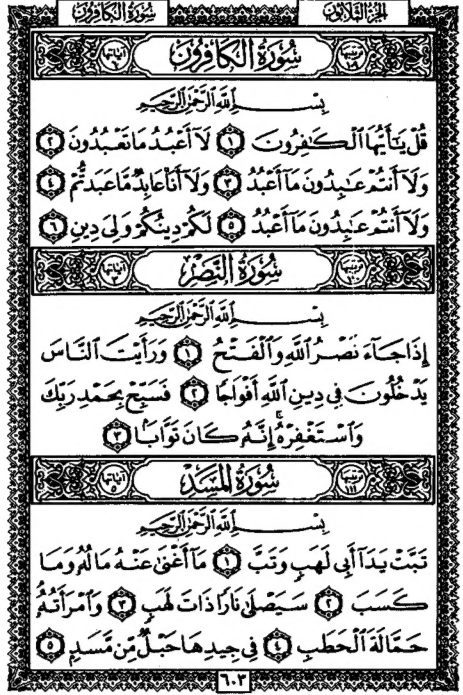 سُورَةُ الكَافِرُونَ الجُزْءُ الثَّلَاثُونَ
سُورَةُ الكَافِرُونَ
بِسْمِ اللَّهِ الرَّحْمَٰنِ الرَّحِيمِ
قُلْ يَٰٓأَيُّهَا الْكَٰفِرُونَ ١ لَآ أَعْبُدُ مَا تَعْبُدُونَ ٢
وَلَآ أَنتُمْ عَٰبِدُونَ مَآ أَعْبُدُ ٣ وَلَآ أَنَا۠ عَابِدٌ مَّا عَبَدتُّمْ ٤
وَلَآ أَنتُمْ عَٰبِدُونَ مَآ أَعْبُدُ ٥ لَكُمْ دِينُكُمْ وَلِيَ دِينِ ٦
سُورَةُ النَّصْرِ
بِسْمِ اللَّهِ الرَّحْمَٰنِ الرَّحِيمِ
إِذَا جَآءَ نَصْرُ اللَّهِ وَالْفَتْحُ ١ وَرَأَيْتَ النَّاسَ
يَدْخُلُونَ فِي دِينِ اللَّهِ أَفْوَاجًا ٢ فَسَبِّحْ بِحَمْدِ رَبِّكَ
وَاسْتَغْفِرْهُ ۚ إِنَّهُۥ كَانَ تَوَّابًۢا ٣
سُورَةُ المَسَدِ
بِسْمِ اللَّهِ الرَّحْمَٰنِ الرَّحِيمِ
تَبَّتْ يَدَآ أَبِي لَهَبٍ وَتَبَّ ١ مَآ أَغْنَىٰ عَنْهُ مَالُهُۥ وَمَا
كَسَبَ ٢ سَيَصْلَىٰ نَارًا ذَاتَ لَهَبٍ ٣ وَامْرَأَتُهُۥ
حَمَّالَةَ الْحَطَبِ ٤ فِي جِيدِهَا حَبْلٌ مِّن مَّسَدٍۭ ٥
٦٠٣